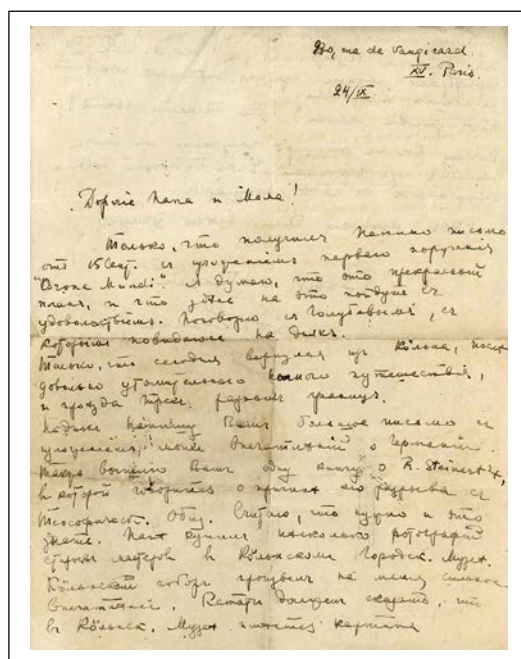 rue de Vaugirard.
XV. Paris.
24/IX.
Дорогіе Папа и Мама!
Только, что получилъ Папино письмо
отъ 15 Сент. съ изложеніемъ перваго порученія
"Corona Mundi". Я думаю, что это прекрасный
планъ, и что здѣсь на это пойдутъ съ
удовольствіемъ. Поговорю съ Голубевымъ, съ
которымъ повидаюсь на дняхъ.
Только, что сегодня вернулся изъ Кёльна, послѣ
довольно утомительнаго ночного путешествія,
и проѣзда трехъ разныхъ границъ.
На дняхъ напишу Вамъ большое письмо съ
изложеніемъ моихъ впечатлѣній о Германіи.
Также вышлю Вамъ одну книгу о R. Steiner'ѣ,
въ которой говорится о причинахъ его разрыва съ
Теософическ. Общ. Считаю, что нужно и это
знать. Папѣ купилъ нѣсколько фотографій
старыхъ мастеровъ въ Кёльнскомъ Городск. Музеѣ.
Кёльнскій соборъ произвелъ на меня сильное
впечатлѣніе. Кстати долженъ сказать, что
въ Кёльнск. Музеѣ имѣется картина